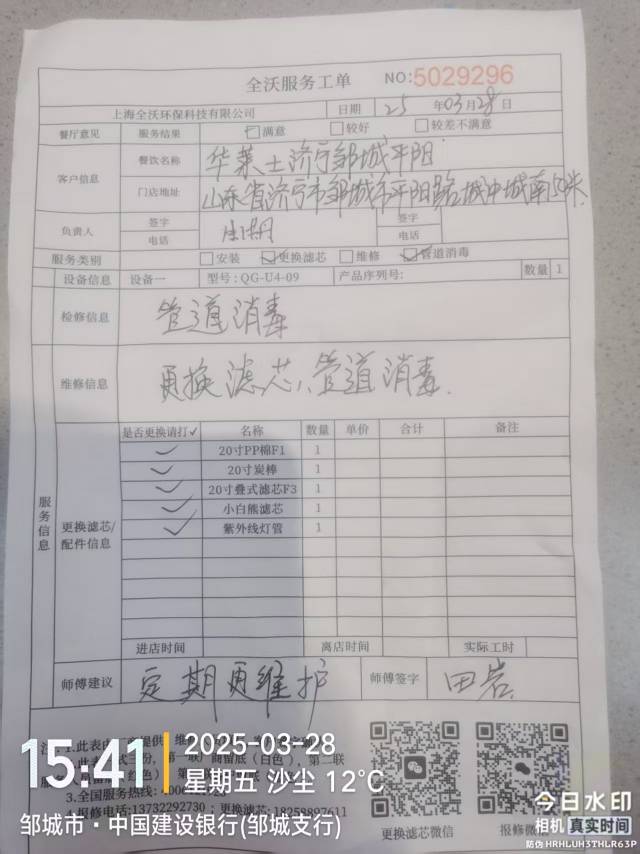 全沃服务工单 NO:5029296
上海全沃环保科技有限公司 日期 25 年 03 月 28 日
餐厅意见 服务结果 满意 较好 较差不满意
客户信息 餐饮名称 华莱士济宁邹城平阳
门店地址 山东省济宁市邹城市平阳路城中城南10米
负责人 签字 签字
电话 电话
服务类别 安装 更换滤芯 维修 管道消毒
设备信息 设备一 型号:QG-U4-09 产品序列号: 数量 1
检修信息 管道消毒
维修信息 更换滤芯、管道消毒.
服务信息
更换滤芯/配件信息
是否更换请打✓ 名称 数量 单价 合计 备注
✓ 20寸PP棉F1 1
✓ 20寸炭棒 1
✓ 20寸叠式滤芯F3 1
✓ 小白熊滤芯 1
✓ 紫外线灯管 1
进店时间 离店时间 实际工时
师傅建议 定期更维护 师傅签字 田岩
注:1.此表由
3.全国服务热线:
4.报修电话:13732292730 ;更换滤芯:18258897611
更换滤芯微信 报修微信
15:41 2025-03-28
星期五 沙尘 12℃
邹城市·中国建设银行(邹城支行)
今日水印
相机 真实时间
防伪 HRHLUH3THLR63P